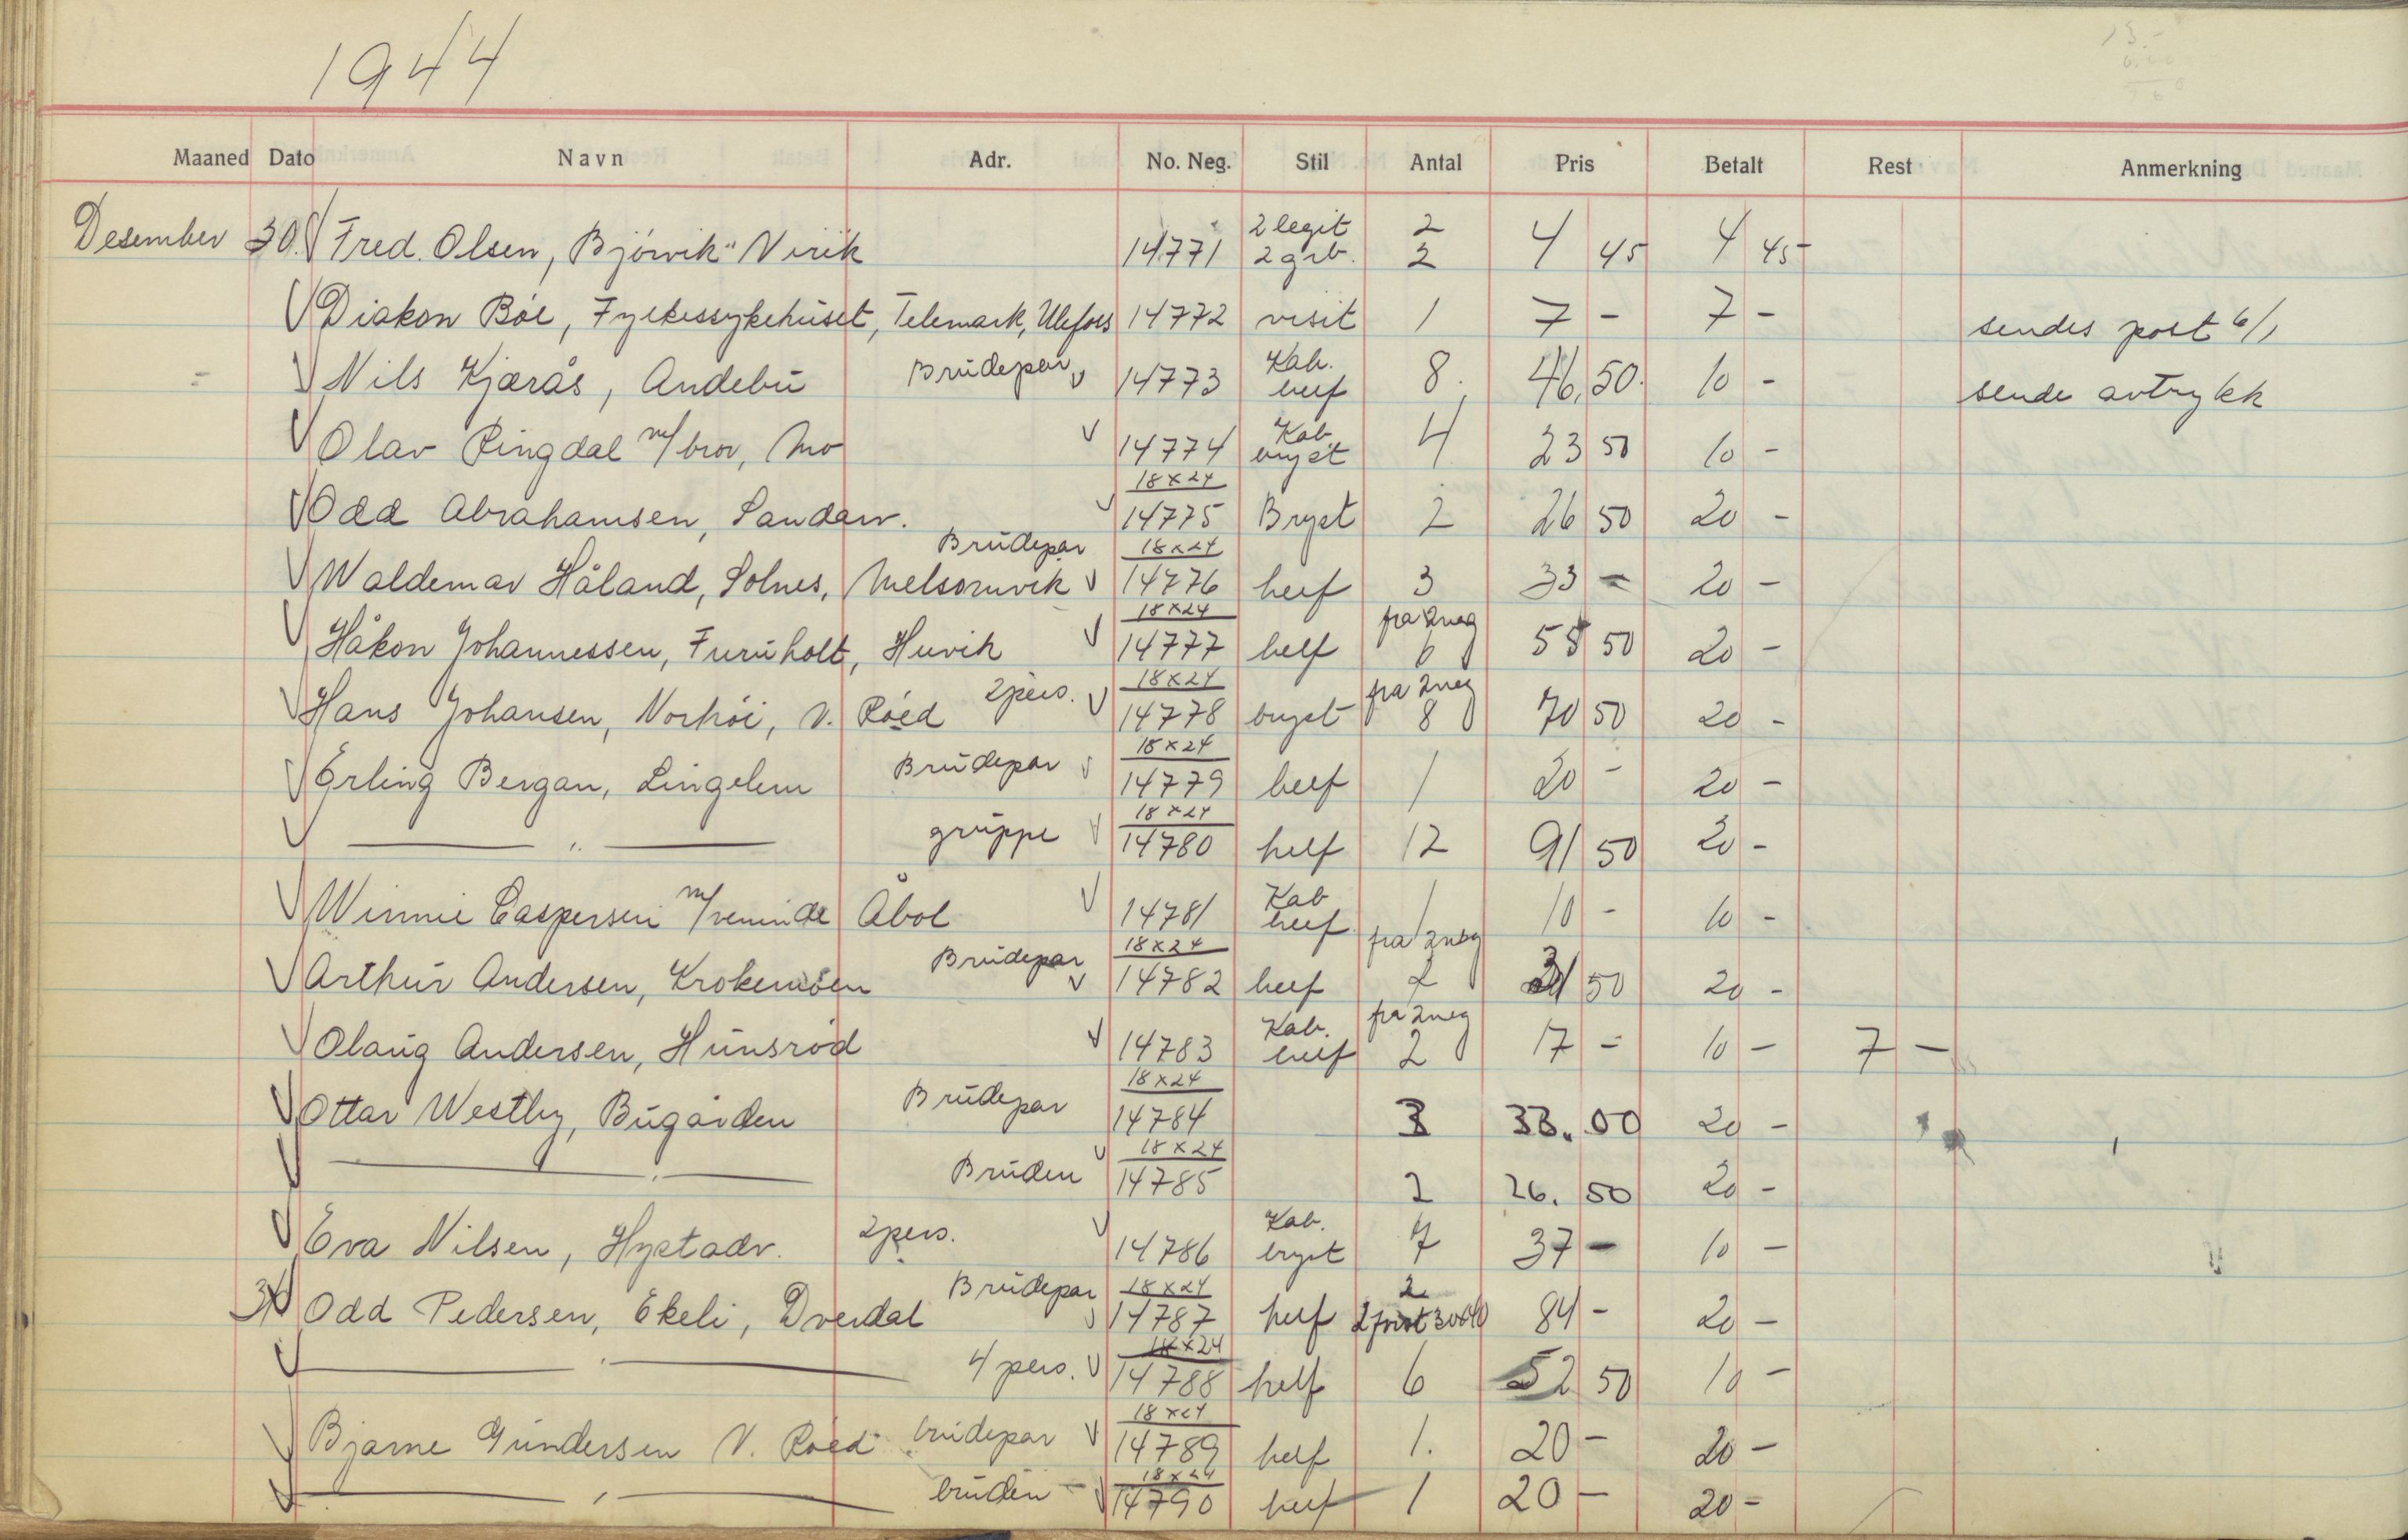 1944
Maaned Dato Navn Adr. No. Neg. Stil Antal Pris Betalt Rest Anmerkning
2 legit 2
Desember 30. Fred. Olsen, Bjørvik" Nirik 14771 2 grb. 2 4 45 4 45
Diakon Bøe, Fylkessykehuset, Telemark, Ulefoss 14772 visit 1 7 - 7 - sendes post 6/1
Kab.
Nils Kjærås, Andebu Brudepar 14773 helf 8. 46,50. 10 - sende avtrykk
Kab.
Olav Ringdal m/bror, Mo 14774 bryst 4 23 50 10 -
18x24
Odd Abrahamsen, Sandarv. 14775 Bryst 2 26 50 20 -
Brudepar 18x24
Waldemar Håland, Solnes, Melsomvik 14776 helf 3 33 - 20 -
18x24 fra 2 neg
Håkon Johannessen, Furuholt, Huvik 14777 helf 6 58 50 20 -
2 pers. 18x24 fra 2 neg
Hans Johansen, Norhøi, V. Røed 14778 bryst 8 70 50 20 -
Brudepar 18x24
Erling Bergan, Lingelem 14779 helf 1 20 - 20 -
18x24
— " — gruppe 14780 helf 12 91 50 20 -
Kab
Winnie Caspersen m/veninde Åbol 14781 helf 1 10 - 10 -
Brudepar 18x24 fra 2 neg
Arthur Andersen, Krokemoen 14782 helf 2 31 50 20 -
Kab. fra 2 neg
Olaug Andersen, Hunsrød 14783 helf 2 17 - 10 - 7 -
Brudepar 18x24
Ottar Westby, Bugården 14784 3 33.00 20 -
18x24
— " — Bruden 14785 2 26.50 20 -
Kab.
Eva Nilsen, Hystadv. 2 pers. 14786 bryst 7 37 - 10 -
Brudepar 18x24 2
31 Odd Pedersen, Ekeli, Dverdal 14787 helf 84 - 20 -
18x24
— " — 4 pers. 14788 helf 6 52 50 10 -
18x24
Bjarne Gundersen V. Røed brudepar 14789 helf 1. 20 - 20 -
18x24
— " — bruden - 14790 helf 1 20 - 20 -